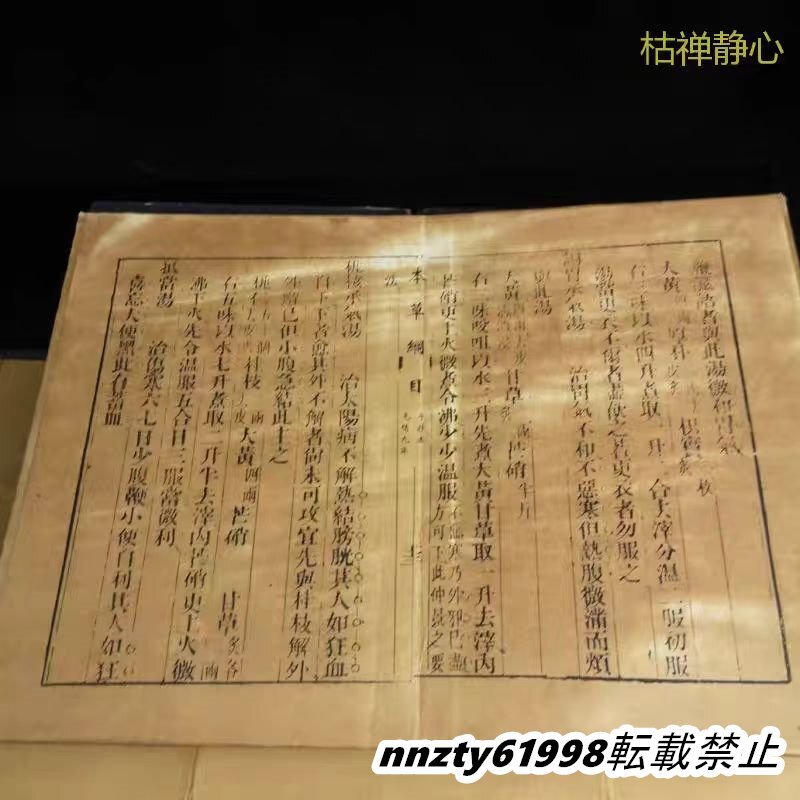 枯禅静心
與此湯微和胃氣
大黃 厚朴 枳實 枚
右 味以水四升煮取一升 合去滓分溫二服初服
湯當更衣不爾者盡使之若更衣者勿服之
胃承氣湯 治胃氣不和不惡寒但熱腹微滿而煩
與此湯
大黃 甘草 芒硝半斤
右 味㕮咀以水三升先煮大黃甘草取一升去滓內
芒硝更上火微煮令沸少少溫服 寒乃外邪已 方可下此仲景之要
法
本草綱目
桃核承氣湯 治太陽病不解熱結膀胱其人如狂血
自下下者愈其外不解者尚未可攻宜先與桂枝解外
外解已但小腹急結此主之
桃仁 桂枝 大黃四兩 芒硝 甘草炙各 兩
右五味以水七升煮取二升半去滓內芒硝更上火微
沸下火先令溫服五合日三服當微利
抵當湯 治傷寒六七日少腹鞕小便自利其人如狂
喜忘大便黑此有蓄血
nnzty61998転載禁止